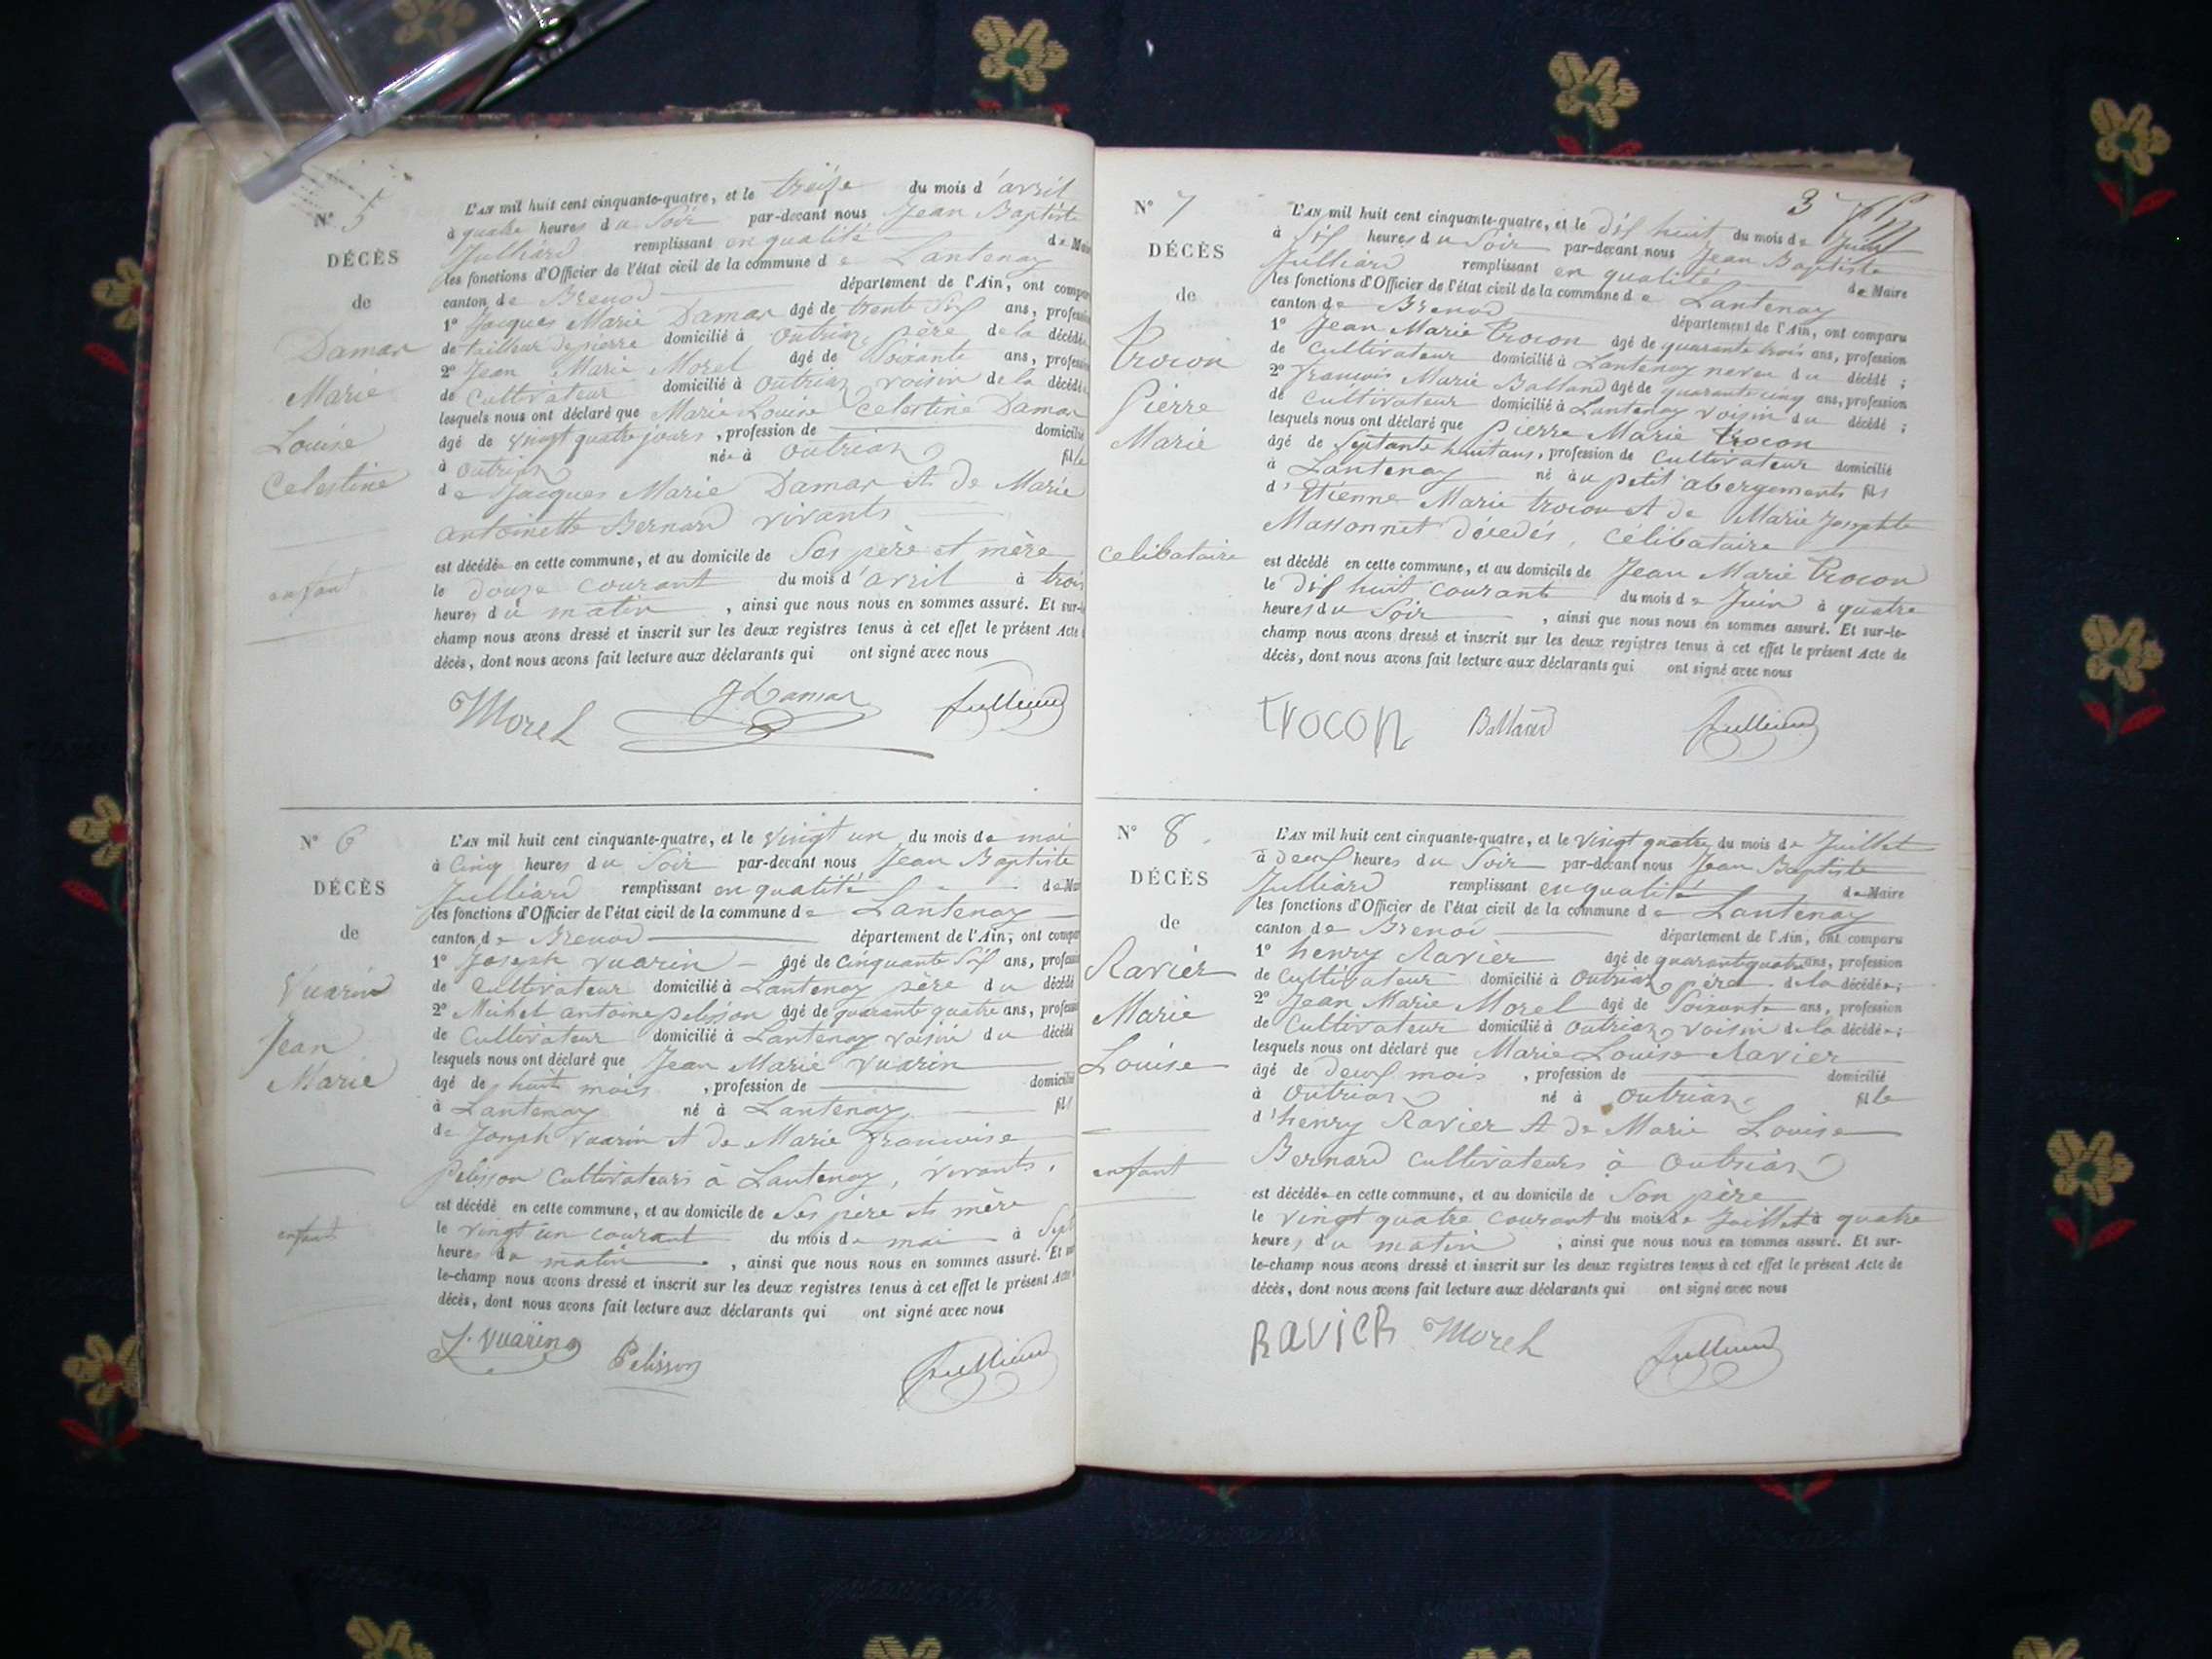 N° 5
DÉCÈS
de
Damar
Marie
Louise
Celestine
enfant
L'AN mil huit cent cinquante-quatre, et le treize du mois d'avril
à quatre heures du Soir par-devant nous Jean Baptiste
Julliard remplissant en qualité de Maire
les fonctions d'Officier de l'état civil de la commune de Lantenay
canton de Brenod département de l'Ain, ont comparu
1° Jacques Marie Damar âgé de trente Six ans, profession
de tailleur de pierre domicilié à Outriaz père de la décédée
2° Jean Marie Morel âgé de Soixante ans, profession
de Cultivateur domicilié à Outriaz voisin de la décédée
lesquels nous ont déclaré que Marie Louise Celestine Damar
âgé de vingt quatre jours, profession de domicilié
à Outriaz née à Outriaz fille
de Jacques Marie Damar et de Marie
antoinette Bernard vivants
est décédée en cette commune, et au domicile de Ses père et mère
le douze courant du mois d'avril à trois
heures du matin, ainsi que nous nous en sommes assuré. Et sur-le-
champ nous avons dressé et inscrit sur les deux registres tenus à cet effet le présent Acte
décès, dont nous avons fait lecture aux déclarants qui ont signé avec nous
Morel J Damar Julliard
N° 6
DÉCÈS
de
Vuarin
Jean
Marie
enfant
L'AN mil huit cent cinquante-quatre, et le vingt un du mois de mai
à Cinq heures du Soir par-devant nous Jean Baptiste
Julliard remplissant en qualité de Maire
les fonctions d'Officier de l'état civil de la commune de Lantenay
canton de Brenod département de l'Ain, ont comparu
1° Joseph Vuarin âgé de Cinquante Six ans, profession
de Cultivateur domicilié à Lantenay père du décédé
2° Michel antoine pelisson âgé de quarante quatre ans, profession
de Cultivateur domicilié à Lantenay voisin du décédé
lesquels nous ont déclaré que Jean Marie Vuarin
âgé de huit mois, profession de domicilié
à Lantenay né à Lantenay fils
de Joseph Vuarin et de Marie françoise
Pelisson Cultivateurs à Lantenay, vivants,
est décédé en cette commune, et au domicile de Ses père et mère
le vingt un courant du mois de mai à Sept
heures du matin, ainsi que nous nous en sommes assuré. Et sur-
le-champ nous avons dressé et inscrit sur les deux registres tenus à cet effet le présent Acte
décès, dont nous avons fait lecture aux déclarants qui ont signé avec nous
J. Vuarin Pelisson Julliard
3
N° 7
DÉCÈS
de
Trocon
Pierre
Marie
Celibataire
L'AN mil huit cent cinquante-quatre, et le dix huit du mois de Juin
à Six heures du Soir par-devant nous Jean Baptiste
Julliard remplissant en qualité de Maire
les fonctions d'Officier de l'état civil de la commune de Lantenay
canton de Brenod département de l'Ain, ont comparu
1° Jean Marie Trocon âgé de quarante trois ans, profession
de Cultivateur domicilié à Lantenay neveu du décédé ;
2° françois Marie Balland âgé de quarante cinq ans, profession
de Cultivateur domicilié à Lantenay voisin du décédé ;
lesquels nous ont déclaré que Pierre Marie Trocon
âgé de Septante huit ans, profession de Cultivateur domicilié
à Lantenay né au petit abergements fils
d'Etienne Marie trocon et de Marie Josephte
Massonnet décédés, Célibataire
est décédé en cette commune, et au domicile de Jean Marie Trocon
le dix huit courant du mois de Juin à quatre
heures du Soir, ainsi que nous nous en sommes assuré. Et sur-le-
champ nous avons dressé et inscrit sur les deux registres tenus à cet effet le présent Acte de
décès, dont nous avons fait lecture aux déclarants qui ont signé avec nous
trocon Balland Julliard
N° 8
DÉCÈS
de
Ravier
Marie
Louise
enfant
L'AN mil huit cent cinquante-quatre, et le vingt quatre du mois de Juillet
à deux heures du Soir par-devant nous Jean Baptiste
Julliard remplissant en qualité de Maire
les fonctions d'Officier de l'état civil de la commune de Lantenay
canton de Brenod département de l'Ain, ont comparu
1° henry Ravier âgé de quarante quatre ans, profession
de Cultivateur domicilié à Outriaz père de la décédée ;
2° Jean Marie Morel âgé de Soixante ans, profession
de Cultivateur domicilié à Outriaz voisin de la décédée ;
lesquels nous ont déclaré que Marie Louise Ravier
âgé de deux mois, profession de domicilié
à Outriaz né à Outriaz fille
d'henry Ravier et de Marie Louise
Bernard Cultivateurs à Outriaz
est décédée en cette commune, et au domicile de Son père
le vingt quatre courant du mois de Juillet à quatre
heures du matin, ainsi que nous nous en sommes assuré. Et sur-
le-champ nous avons dressé et inscrit sur les deux registres tenus à cet effet le présent Acte de
décès, dont nous avons fait lecture aux déclarants qui ont signé avec nous
RAVIER Morel Julliard